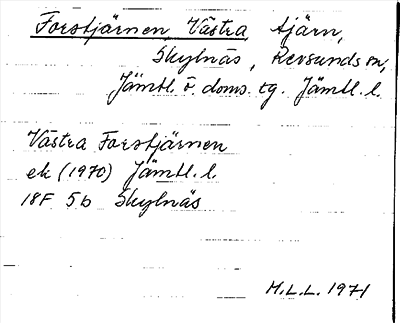 Forstjärnen Västra tjärn,
Skylnäs, Revsunds sn,
Jämtl. ö. doms. tg. Jämtl. l.
Västra Forstjärnen
ek (1970) Jämtl. l.
18F 5b Skylnäs
M.L.L. 1971